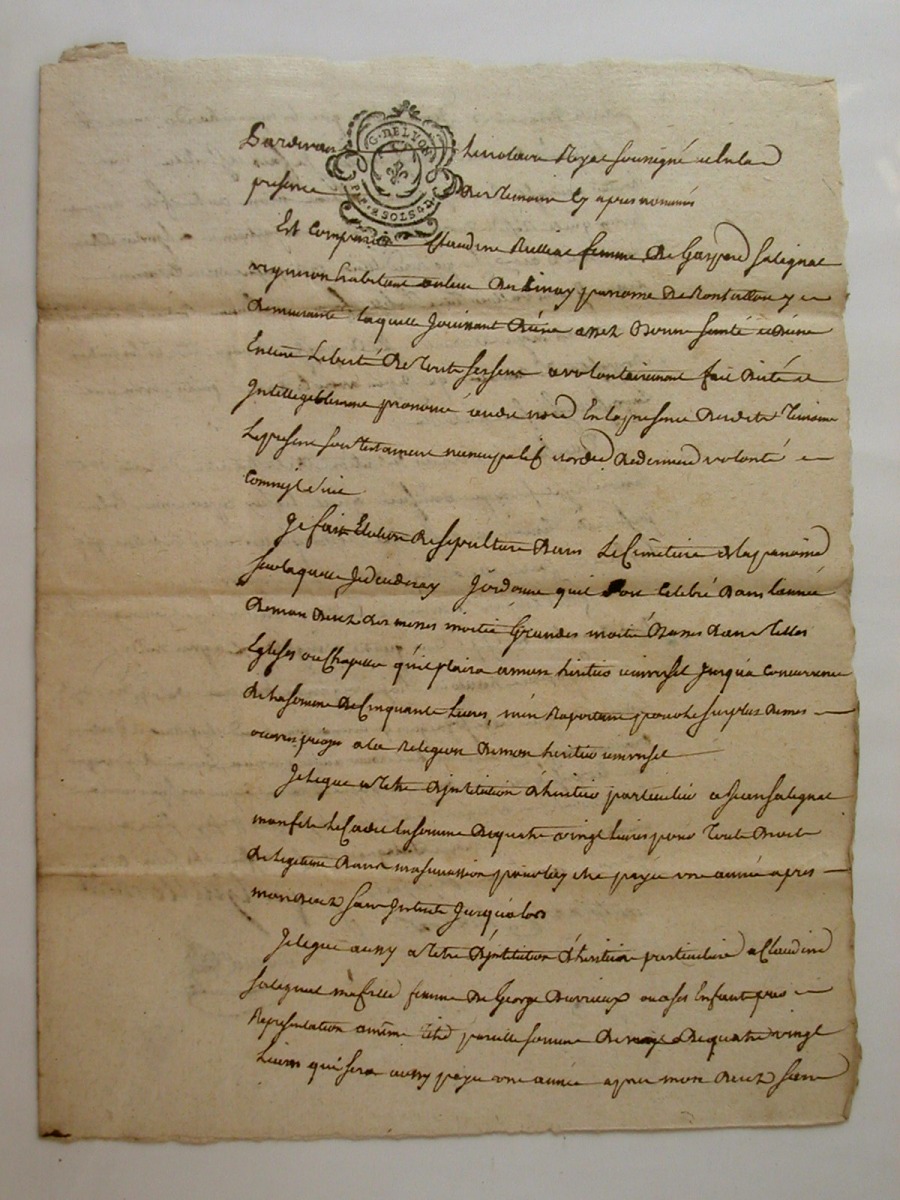 Pardevant Le notaire Royal soussigné et en la
presence Des Temoins Cy apres nommés
G. DE LYON
PAP. 2 SOLS 4 D
Est Comparue Claudine femme De Gaspard Salignat
vigneron habitant au lieu De paroisse De y
Demeurante laquelle Jouissant D'une assez Bonne Santé et D'une
Entiere Liberté De Toute ses sens a volontairement fait Dicté et
Intelligiblement prononcé a nous no.re En la presence Desdits Temoins
Le present son Testament nuncupatif et ordre De derniere volonté
comme s'ensuit
Je fais Election De sepulture Dans Le Cimetiere De la paroisse
Sur laquelle Je decederay J'ordonne quil soit Celebré Dans l'année
De mon Decez Des messes moitié Grandes moitié Basses Dans Telles
Eglises ou Chapelles qu'il plaira a mon heritier universel Jusqu'a Concurrence
De la somme De Cinquante Livres, m'en Raportant pour le surplus De mes
œuvres pies a la Religion De mon heritier universel
Je legue a Titre D'institution d'heritier particulier a Jean Salignat
mon fils Le Cadet la somme De quatre vingt Livres pour Tout Droit
De legitime Dans ma succession pour luy etre payée une année apres
mon Decez sans Jnterets Jusqu'alors
Je legue aussy a Titre D'institution d'heritiere particuliere a Claudine
Salignat ma fille femme De George ou a ses Enfants par
Representation a même Titre pareille somme De quatre vingt
Livres qui sera aussy payée une année apres mon Decez sans